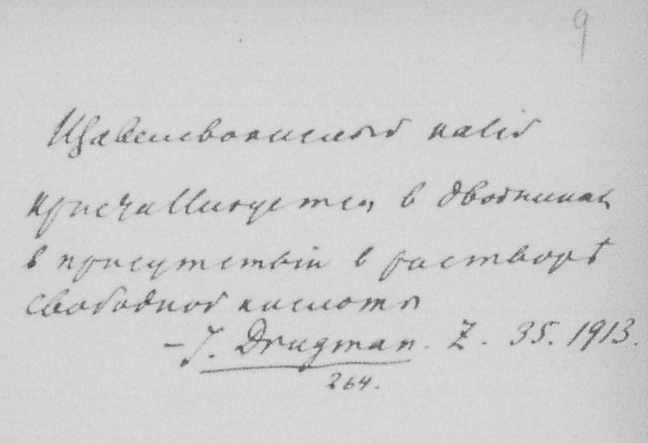 9
Щавелевокислый калій
кристаллизуется в двойниках
в присутствіи в растворѣ
свободной кислоты
– J. Drugman. Z. 35. 1913.
264.